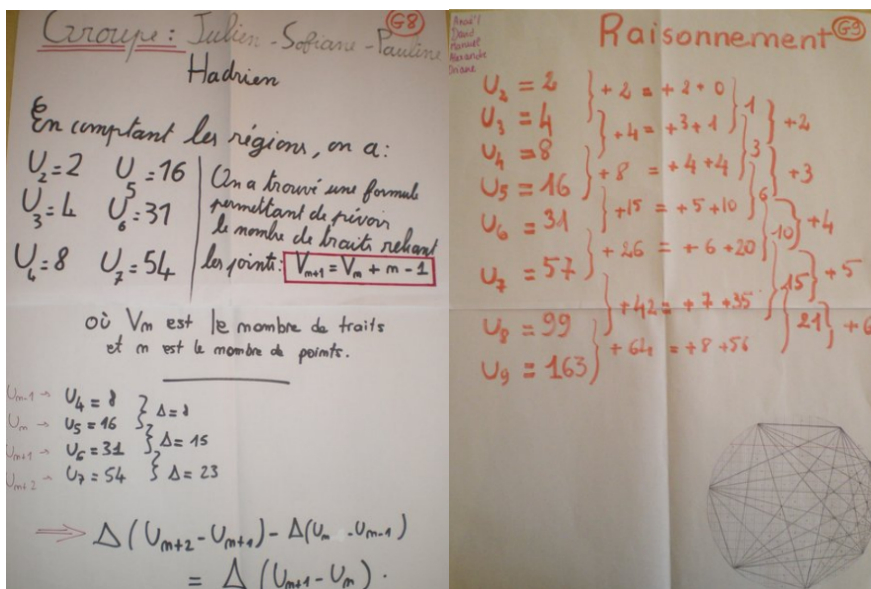 G8
Groupe: Julien - Sofiane - Pauline
Hadrien
En comptant les régions, on a:
U2 = 2 U5 = 16
U3 = 4 U6 = 31
U4 = 8 U7 = 54
On a trouvé une formule
permettant de pévoir
le nombre de traits reliant
les points: Vm+1 = Vm + m - 1
où Vm est le nombre de traits
et m est le nombre de points.
Um-1 → U4 = 8
Um → U5 = 16
Um+1 → U6 = 31
Um+2 → U7 = 54
Δ = 8
Δ = 15
Δ = 23
⇒ Δ(Um+2 - Um+1) - Δ(Um - Um-1)
= Δ (Um+1 - Um).
David
Manuel
Alexandre
Raisonnement G9
U2 = 2
U3 = 4
U4 = 8
U5 = 16
U6 = 31
U7 = 57
U8 = 99
U9 = 163
+ 2 = + 2 + 0
+ 4 = + 3 + 1
+ 8 = + 4 + 4
+ 15 = + 5 + 10
+ 26 = + 6 + 20
+ 42 = + 7 + 35
+ 64 = + 8 + 56
1
3
6
10
15
21
+ 2
+ 3
+ 4
+ 5
+ 6